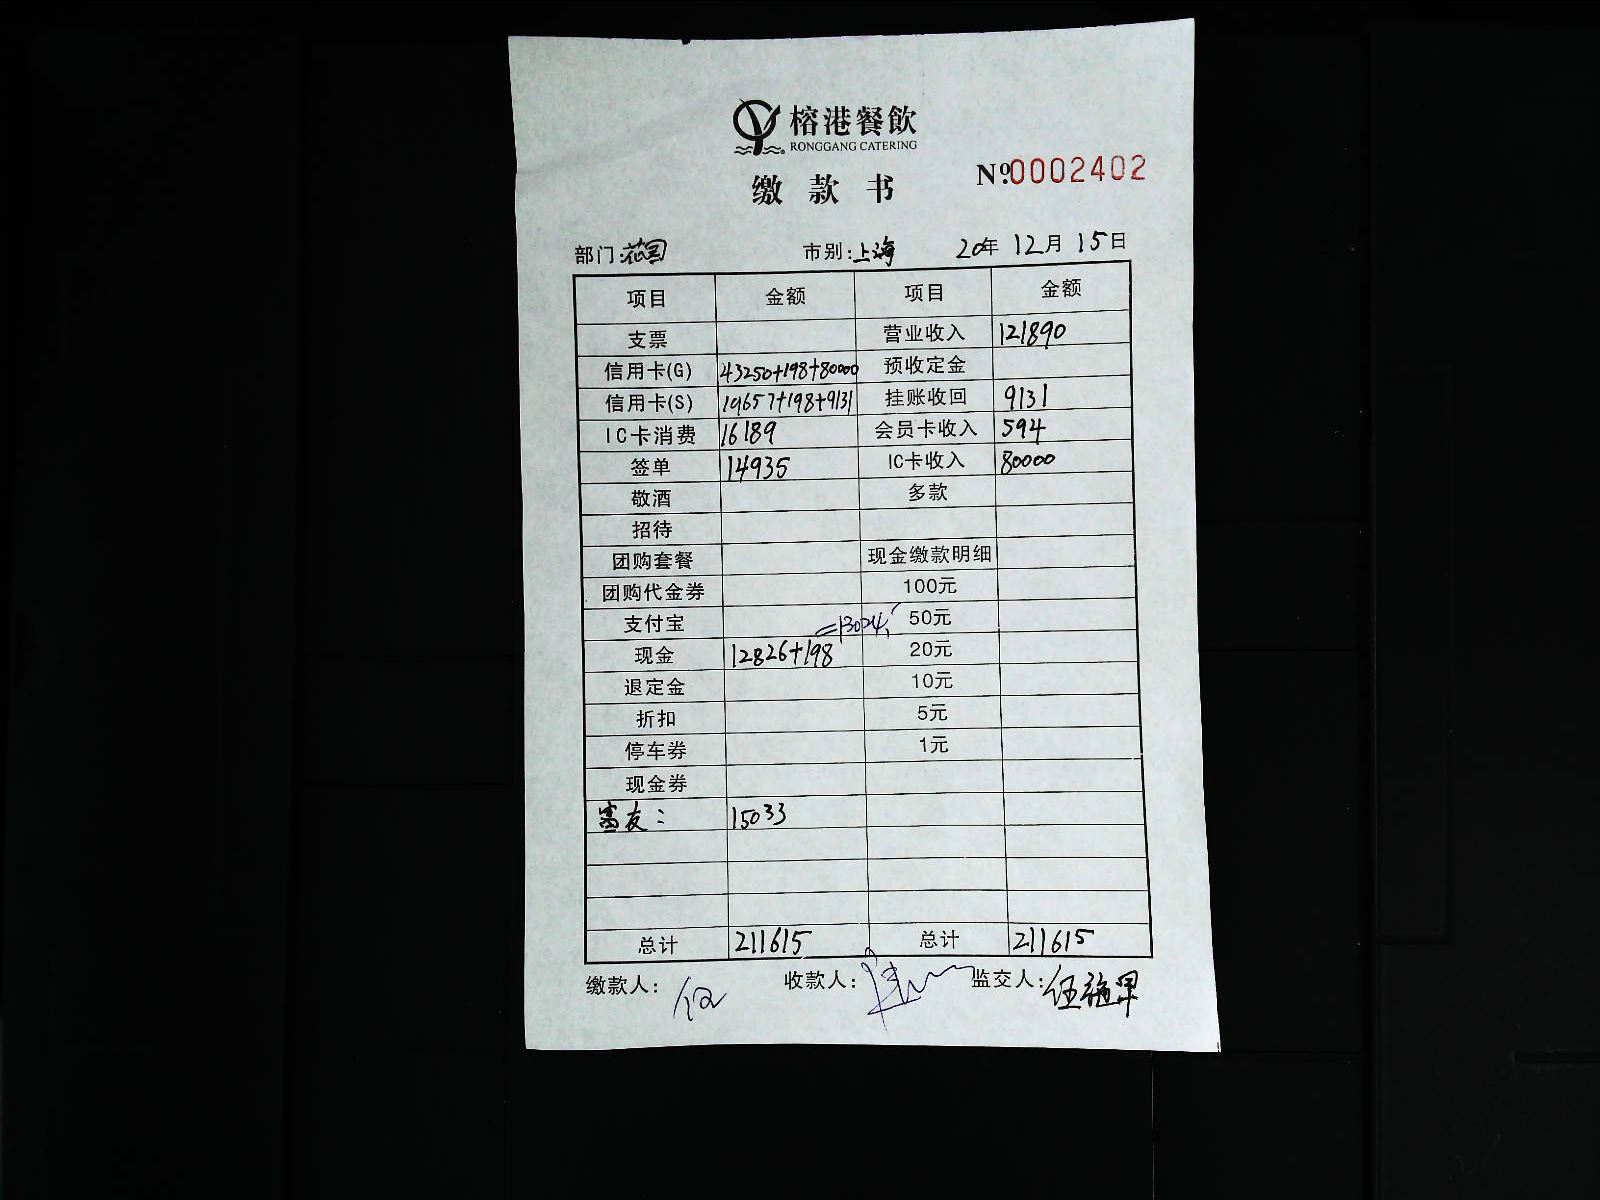 榕港餐飲
RONGGANG CATERING
缴款书
№0002402
部门:花园 市别:上海 20年 12月 15日
项目 金额 项目 金额
支票 营业收入 121890
信用卡(G) 43250+198+80000 预收定金
信用卡(S) 19657+198+9131 挂账收回 9131
IC卡消费 16189 会员卡收入 594
签单 14935 IC卡收入 80000
敬酒 多款
招待
团购套餐 现金缴款明细
团购代金券 100元
支付宝 =13024 50元
现金 12826+198 20元
退定金 10元
折扣 5元
停车券 1元
现金券
富友: 15033
总计 211615 总计 211615
缴款人: 收款人: 监交人: